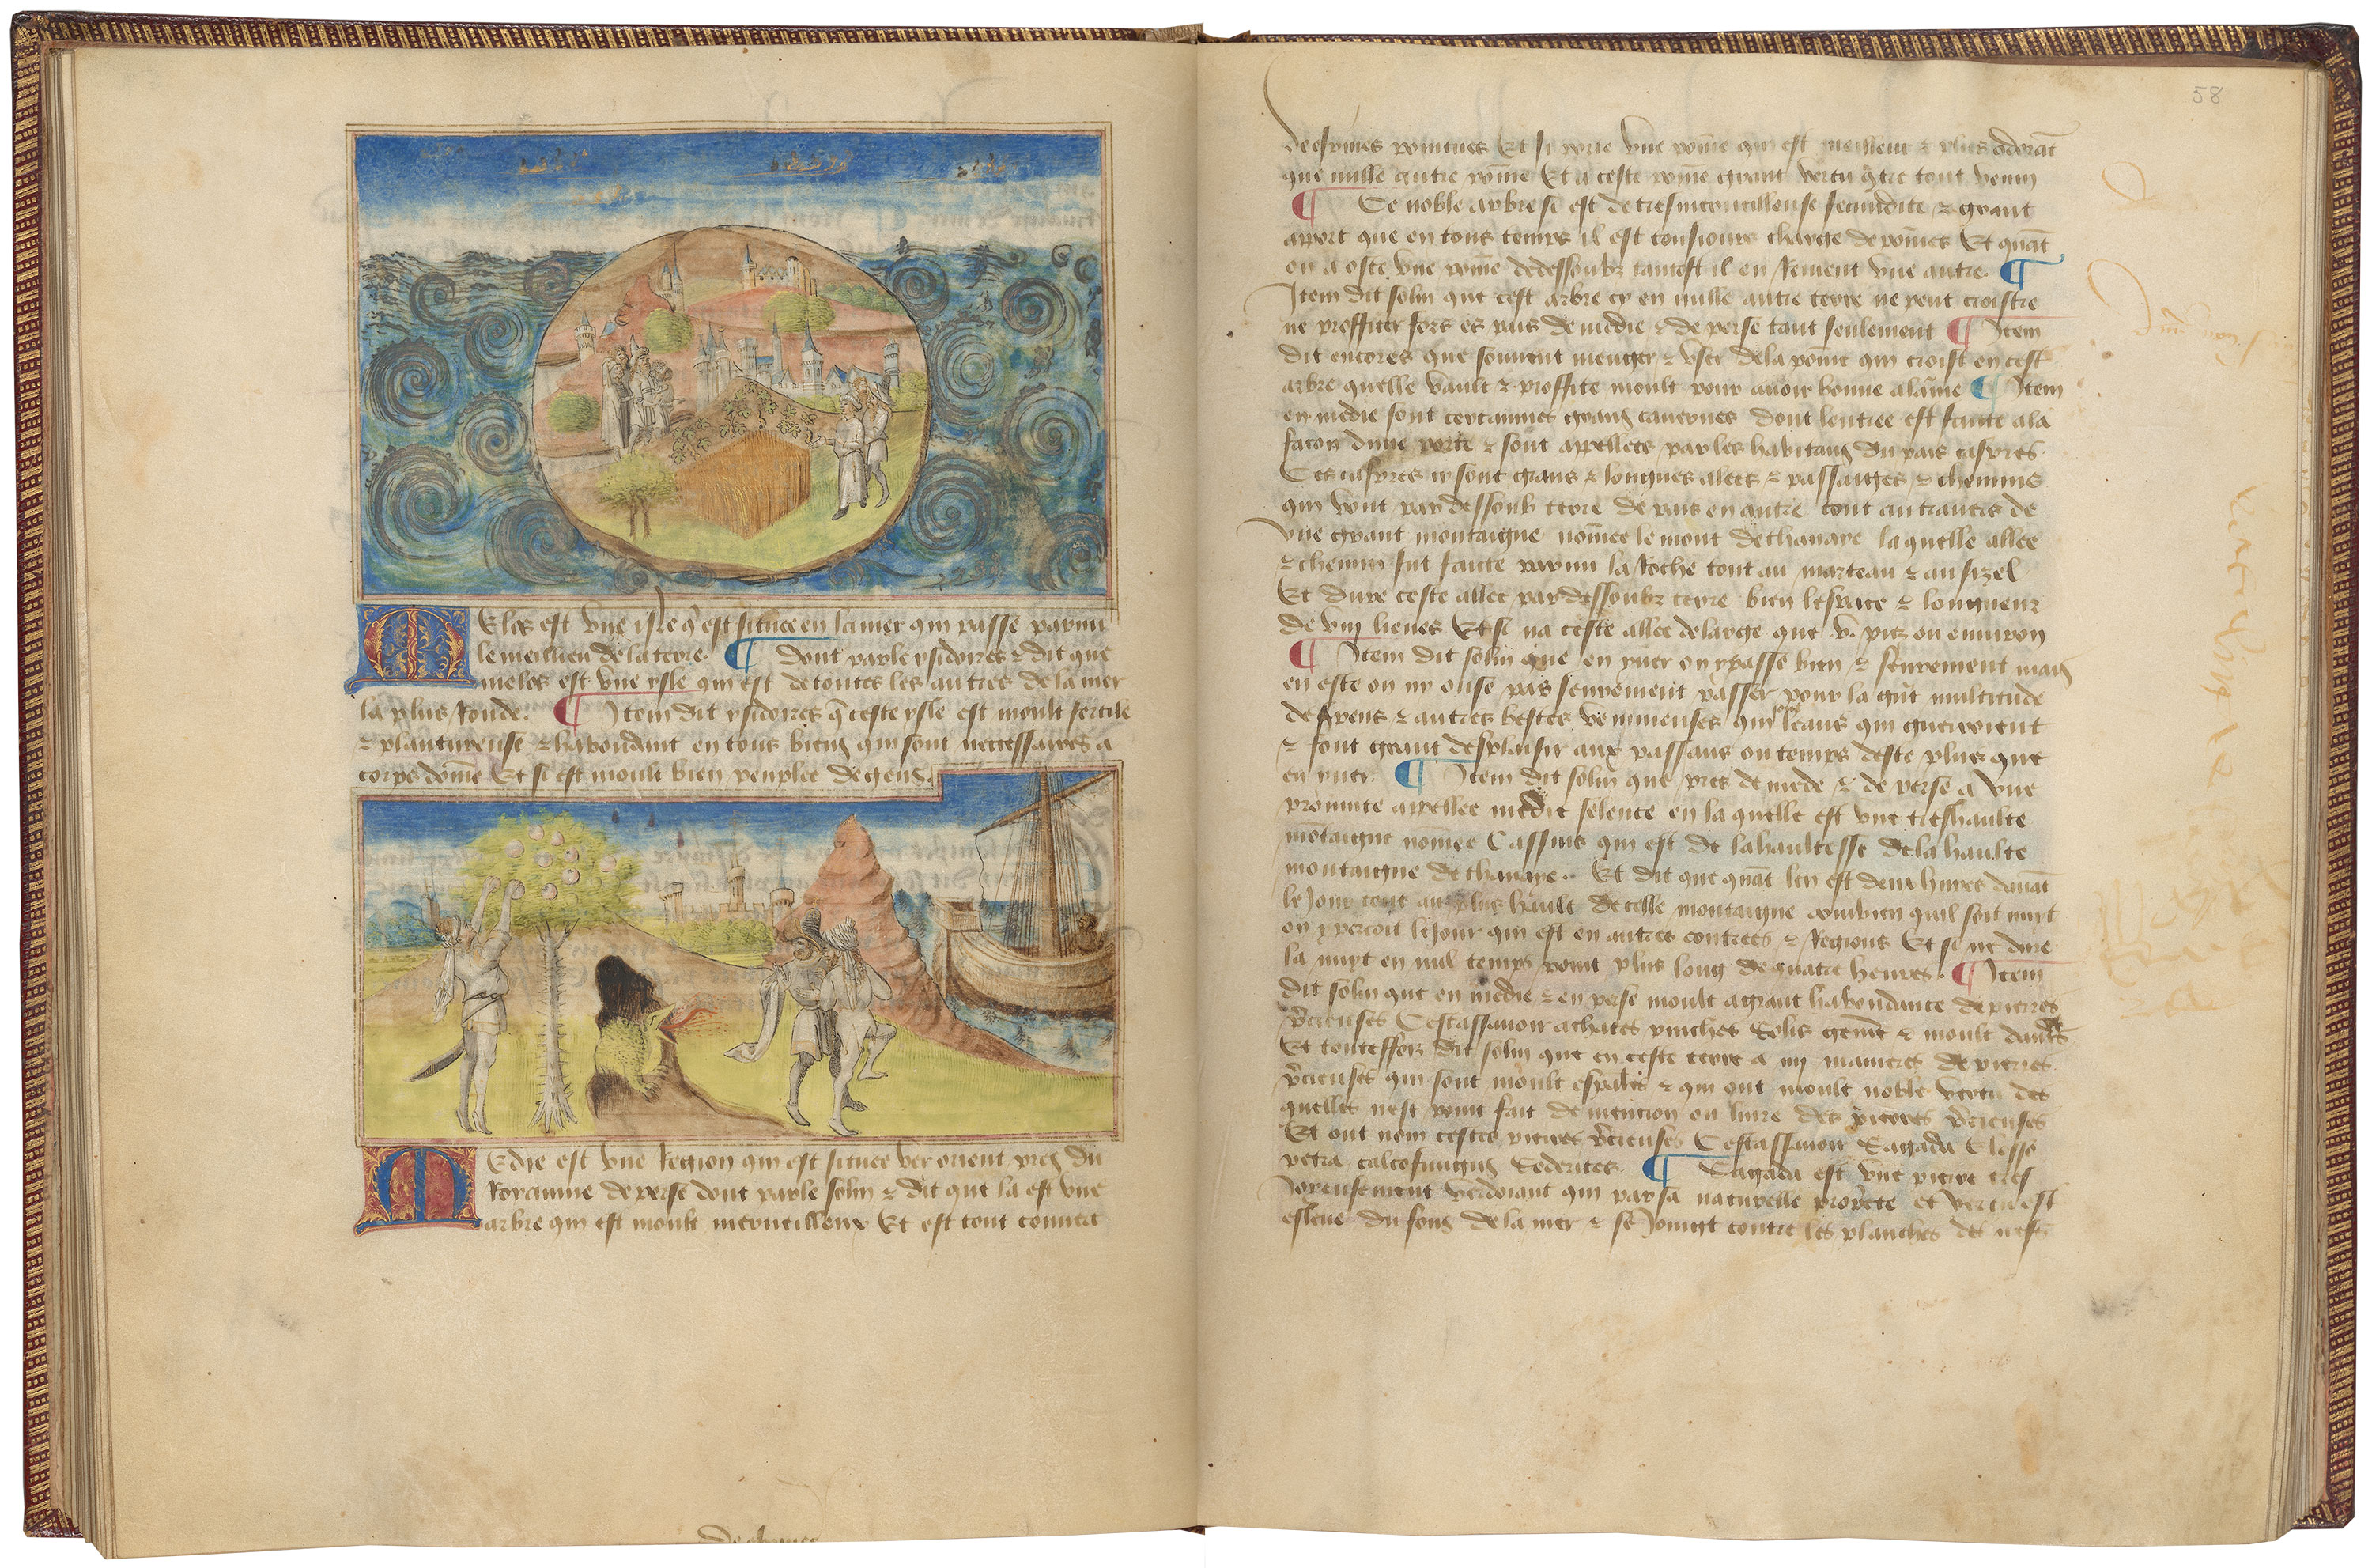 Elos est vne isle q̃ est situee en la mer qui passe parmi
le meillieu de la terre. ¶ Dont parle ysidoires & dit que
melos est vne ysle qui est de toutes les autres de la mer
la plus Ronde. ¶ Item dit ysidoires q̃ ceste ysle est moult fertile
& plantureuse & habondant en tous biens qui sont neccessaires a
corps dõme Et si est moult bien peuplee de gens.
M Edie est vne Region qui est situee ver orient pres du
Royaume de perse dont parle solin & dit que la est vne
arbre qui est moult merueilleux Et est tout couuert
58
despines pointues Et si porte vne põme qui est meilleur & plus odorãt
que nulle autre põme Et a ceste põme grant vertu cõtre tout venin
¶ Ce noble arbre si est de tresmerueilleuse fecundite & grant
aport que en tous temps il est tousiours charge de põmes Et quãt
on a oste vne põme dedessoubz tantost il en Reuient vne autre. ¶
Item dit solin que cest arbre cy en nulle autre terre ne peut croistre
ne proffiter fors es pais de medie & de perse tant seulement ¶ Item
dit encores que souuent menger & vser de la põme qui croist en cest
arbre quelle vault & proffite moult pour auoir bonne alaine ¶ Item
en medie sont certaines grans cauernes dont lentree est faite a la
facon dune porte & sont appellees par les habitans du pais caspres.
Ces caspres cy sont grans & longues alees & passaiges & chemins
qui vont par dessoub terre de pais en autre tout au trauers de
vne grant montaigne nõmee le mont de thanaye laquelle allee
& chemin fut faicte parmi la Roche tout au marteau & au sizel
Et dure ceste allee par dessoubz terre bien lespace & longueur
de viij lieues Et si na ceste allee de large que .v. piez ou enuiron
¶ Item dit solin que en yuer on y passe bien & seurement mais
en este on ny ouse pas seurement passer pour la grãt multitude
de serpens & autres bestes venimeuses qui leans qui guerroient
& font grant desplaisir aux passans ou temps deste plus que
en yuer. ¶ Item dit solin que pres de mede & de perse a vne
prouince appellee medie selence en laquelle est vne treshaulte
mõtaigne nõmee Cassius qui est de la haultesse de la haulte
montaigne de thanaye. Et dit que quãt len est deux heures dauãt
le Jour tout au plus hault de celle montaigne combien quil soit nuyt
on y percoit le Jour qui est en autres contrees & Regions Et si ne dure
la nuyt en nul temps point plus long de quatre heures. ¶ Item
dit solin que en medie & en perse moult a grant habondance de pierres
p̃cieuses Cestassauoir achates Solis & moult dautres
Et touteffois dit solin que en ceste terre a iiij manieres de pierres
p̃cieuses qui sont moult & qui ont moult noble vertu des
quelles nest point fait de mencion ou liure des pierres p̃cieuses
Et ont nom cestes pierres p̃cieuses Cestassauoir Sagada
petra calcofungus ¶ Sagada est vne pierre tres
Joyeusement verdoiant qui par sa naturelle prop̃ete et vertu est
esleue du fons de la mer & se Joingt contre les planches des nefs